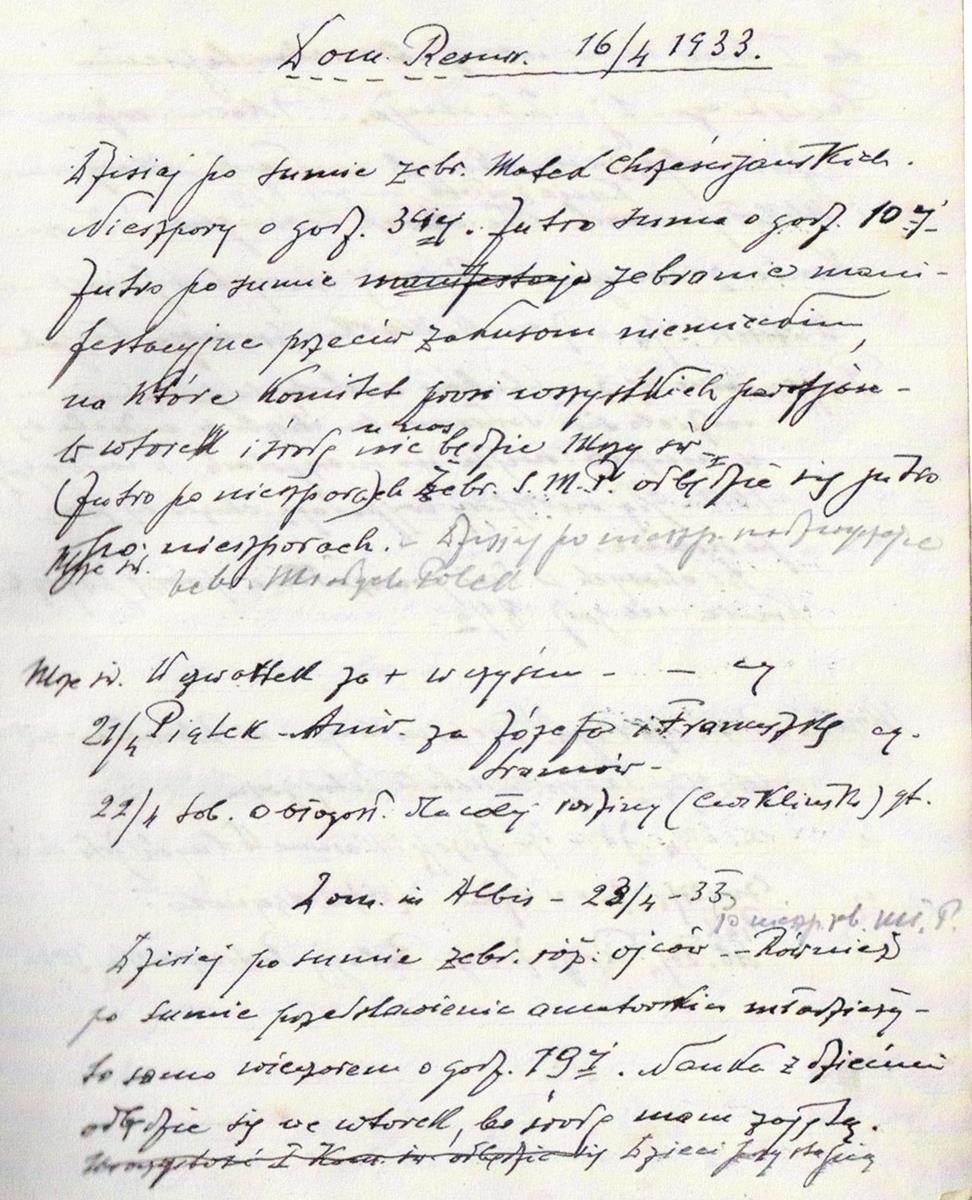 Dom. Resurr. 16/4 1933.
Dzisiaj po sumie zebr. Matek Chrześcijańskich.
Nieszpory o godz. 3ciej. Jutro suma o godz. 10ej
Jutro po sumie manifestacja zebranie mani-
festacyjne przeciw zakusom niemieckim,
na które Komitet prosi wszystkich parafjan -
W wtorek i środę nie u nas będzie Mszy św.
(Jutro po nieszporach) Zebr. S.M.P. odbędzie się jutro
po nieszporach. - Dzisiaj po nieszp. nadzwyczajne
Msze św. zebr. Młodych Polek
Msze św. W czwartek za + w czyśćcu - - cz
21/4 Piątek - Aniw. za Józefa i Franciszkę cz.
22/4 sob. O błogosł. dla całej rodziny () gt.
Dom. in Albis - 23/4 - 33
Po nieszp. zeb. Mł. P.
Dzisiaj po sumie zebr. róż. ojców - Również
po sumie przedstawienie amatorskie młodzieży -
to samo wieczorem o godz. 7ej. Nauka z dziećmi
odbędzie się we wtorek, bo środę mam zajętą.
Uroczystość I Kom. św. odbędzie się Dzieci przystąpią